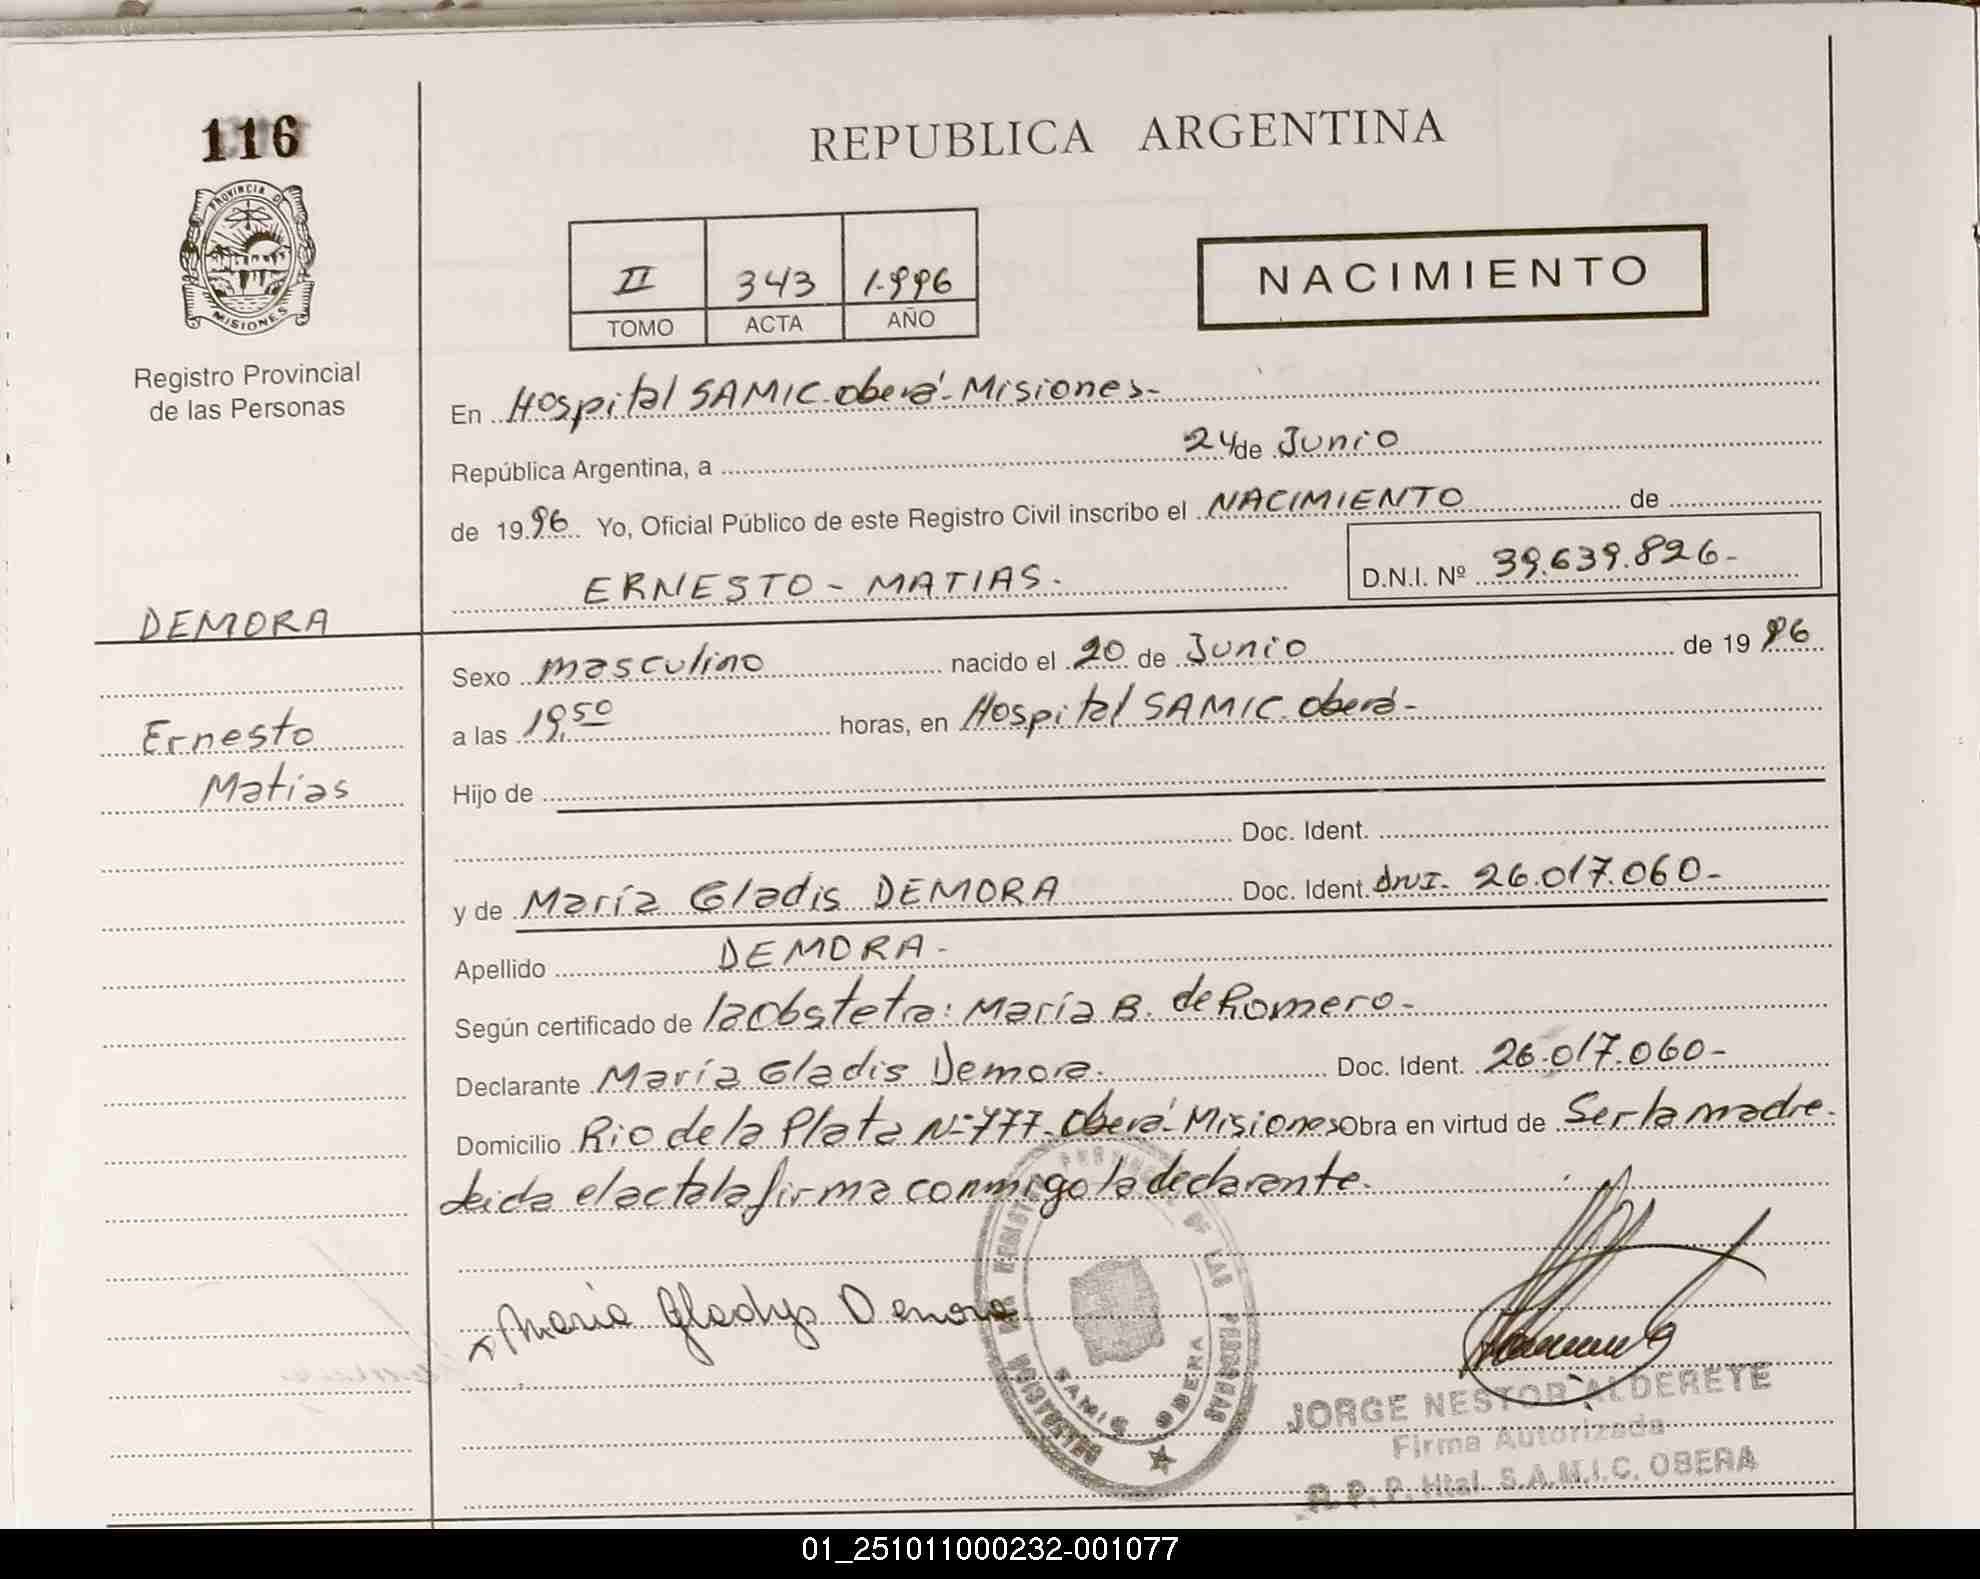 116
PROVINCIA DE
MISIONES
Registro Provincial
de las Personas
DEMORA
Ernesto
Matias
REPUBLICA ARGENTINA
II 343 1.996
TOMO ACTA AÑO
NACIMIENTO
En Hospital SAMIC-oberá-Misiones-
República Argentina, a 24 de Junio
de 1996 Yo, Oficial Público de este Registro Civil inscribo el NACIMIENTO de
ERNESTO - MATIAS. D.N.I. Nº 39.639.826-
Sexo masculino nacido el 20 de Junio de 1996
a las 19,50 horas, en Hospital SAMIC-oberá-
Hijo de
Doc. Ident.
y de María Gladis DEMORA Doc. Ident. DNI- 26.017.060-
Apellido DEMORA-
Según certificado de la Obsteta: María B. de Romero-
Declarante María Gladis Demora. Doc. Ident. 26.017.060-
Domicilio Rio de la Plata Nº 777-Oberá-Misiones Obra en virtud de Ser la madre.
Leida el acta la firma conmigo la declarante.
x Maria Gladys Demora
DELEGACION DE REGISTRO PROVINCIAL DE LAS PERSONAS
SAMIC OBERA
JORGE NESTOR ALDERETE
Firma Autorizada
R. P. P. Htal. S.A.M.I.C. OBERA
01_251011000232-001077